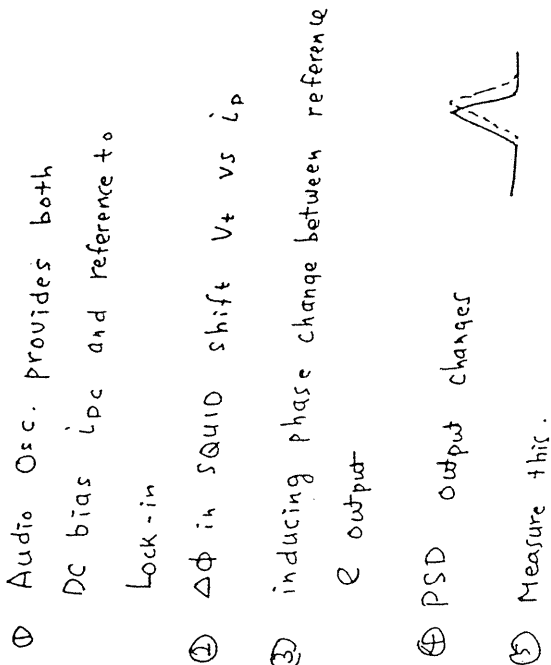 ① Audio Osc. provides both
DC bias iDC and reference to
Lock-in
② ΔΦ in SQUID shift Vt vs iD
③ inducing phase change between reference
@ output
④ PSD output changes
⑤ Measure this.